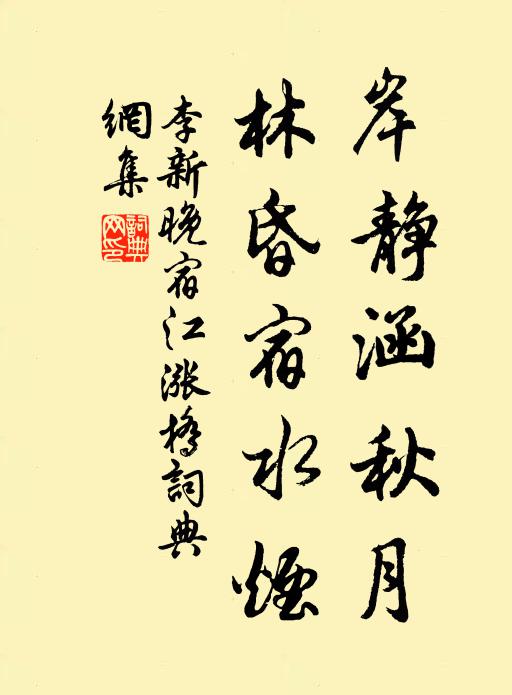 岸靜涵秋月
林昏宿水煙
李新晚宿江漲橋詞典
網集
詞典網印